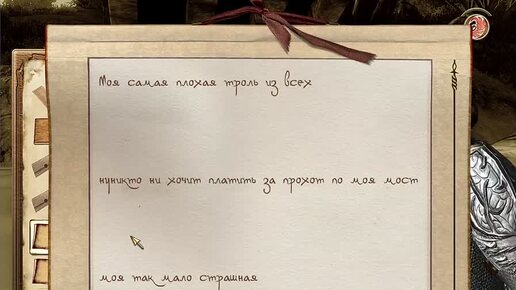 Моя самая плохая троль из всех
нуникто ни хочит платить за прохот по моя мост
моя так мало страшная